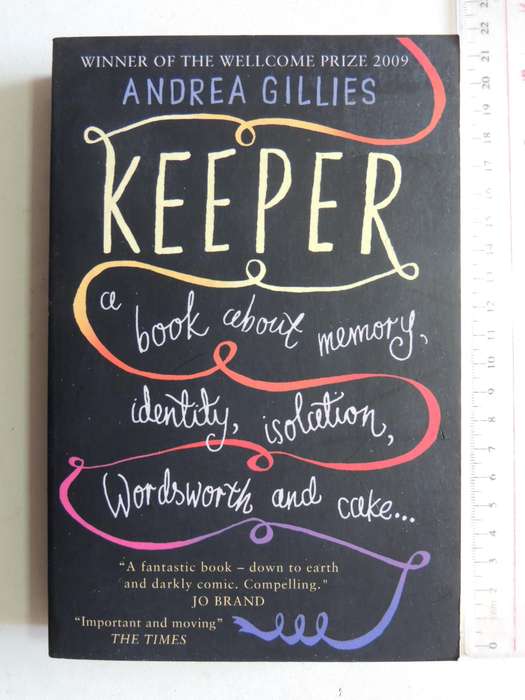 WINNER OF THE WELLCOME PRIZE 2009
ANDREA GILLIES
KEEPER
a book about memory,
identity, isolation,
Wordsworth and cake...
"A fantastic book – down to earth
and darkly comic. Compelling."
JO BRAND
"Important and moving"
THE TIMES